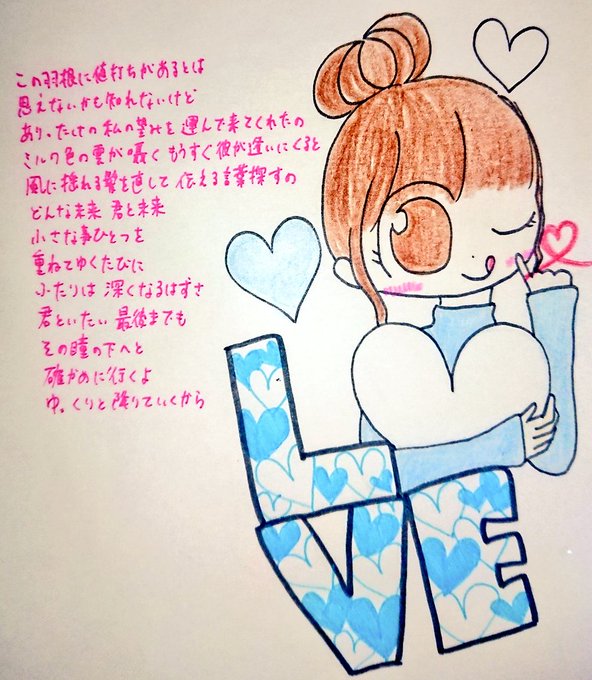 この羽根に値打ちがあるとは
思えないかも知れないけど
ありったけの私の望みを運んで来てくれたの
ミルク色の雲が囁くもうすぐ彼が逢いにくると
風に揺れる髪を直して伝える言葉探すの
どんな未来 君と未来
小さな事ひとつを
重ねてゆくたびに
ふたりは 深くなるはずさ
君といたい 最後までも
その瞳の下へと
確かめに行くよ
ゆっくりと降りていくから
L
VE